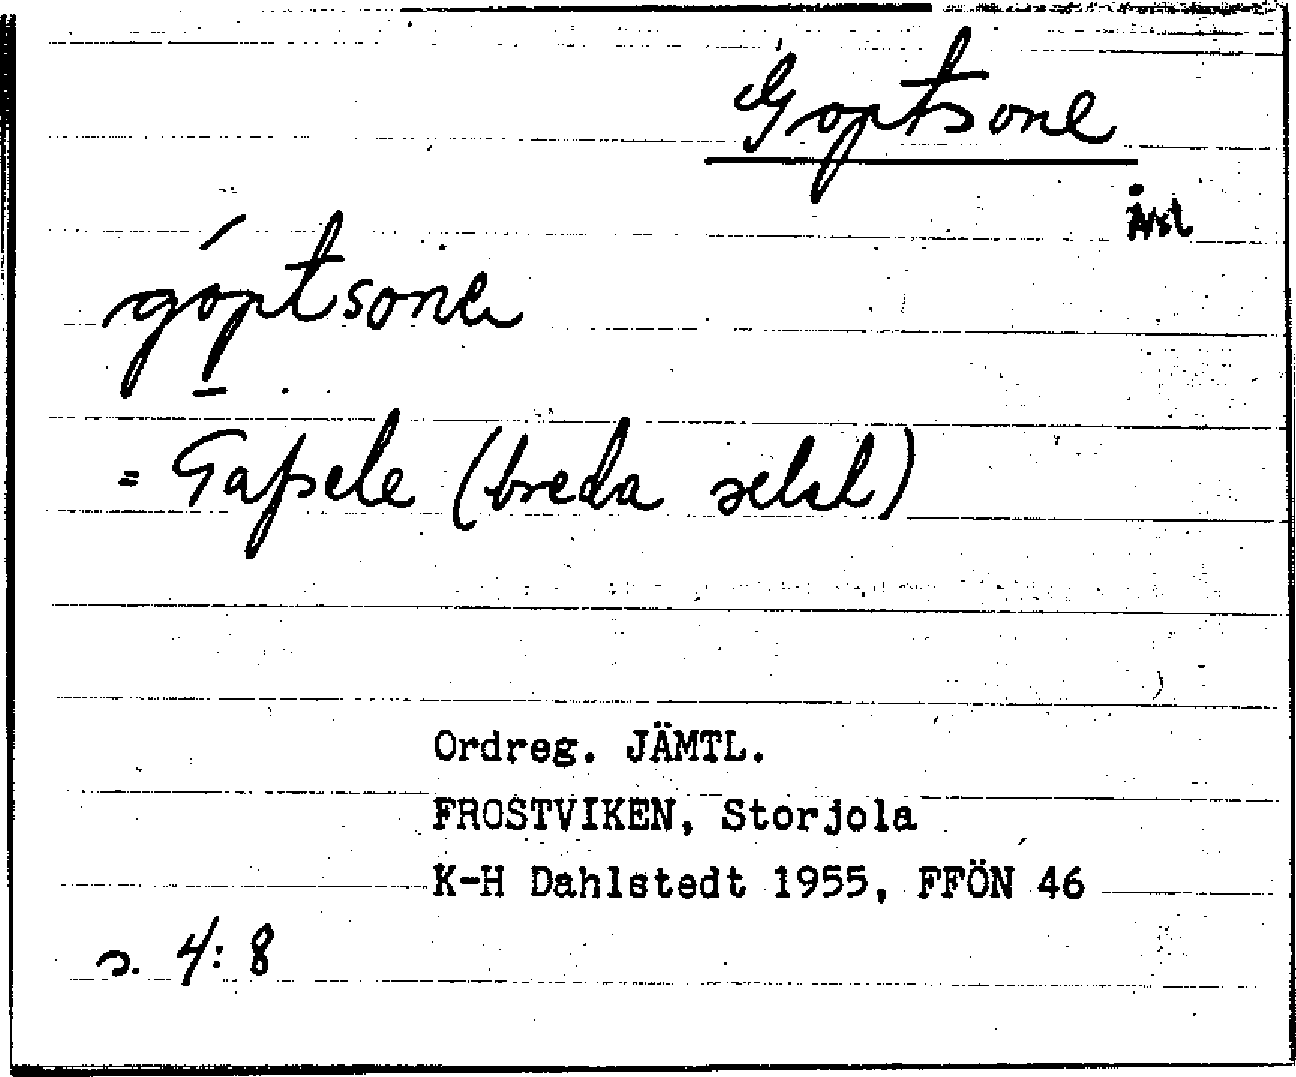 Goptsone
Åsel
góptsone
= Gafsele (breda selet)
Ordreg. JÄMTL.
FROSTVIKEN, Storjola
K-H Dahlstedt 1955, FFÖN 46
s. 4:8